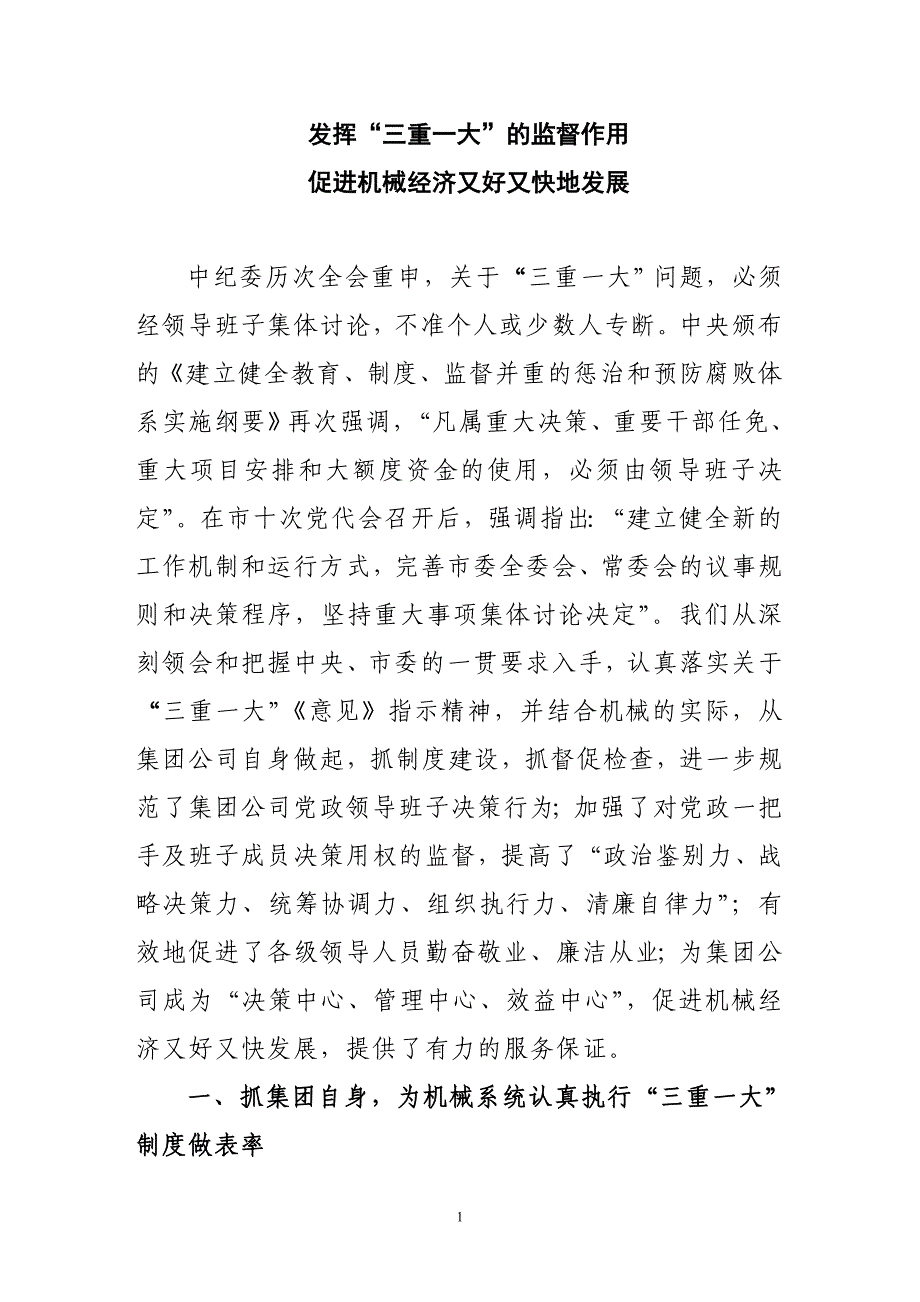 发挥“三重一大”的监督作用
促进机械经济又好又快地发展
中纪委历次全会重申，关于“三重一大”问题，必须
经领导班子集体讨论，不准个人或少数人专断。中央颁布
的《建立健全教育、制度、监督并重的惩治和预防腐败体
系实施纲要》再次强调，“凡属重大决策、重要干部任免、
重大项目安排和大额度资金的使用，必须由领导班子决
定”。在市十次党代会召开后，强调指出：“建立健全新的
工作机制和运行方式，完善市委全委会、常委会的议事规
则和决策程序，坚持重大事项集体讨论决定”。我们从深
刻领会和把握中央、市委的一贯要求入手，认真落实关于
“三重一大”《意见》指示精神，并结合机械的实际，从
集团公司自身做起，抓制度建设，抓督促检查，进一步规
范了集团公司党政领导班子决策行为；加强了对党政一把
手及班子成员决策用权的监督，提高了“政治鉴别力、战
略决策力、统筹协调力、组织执行力、清廉自律力”；有
效地促进了各级领导人员勤奋敬业、廉洁从业；为集团公
司成为“决策中心、管理中心、效益中心”，促进机械经
济又好又快发展，提供了有力的服务保证。
一、抓集团自身，为机械系统认真执行“三重一大”
制度做表率
1